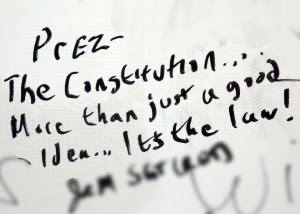 PREZ-
The Constitution...
More than just a good
Idea... Its the law!